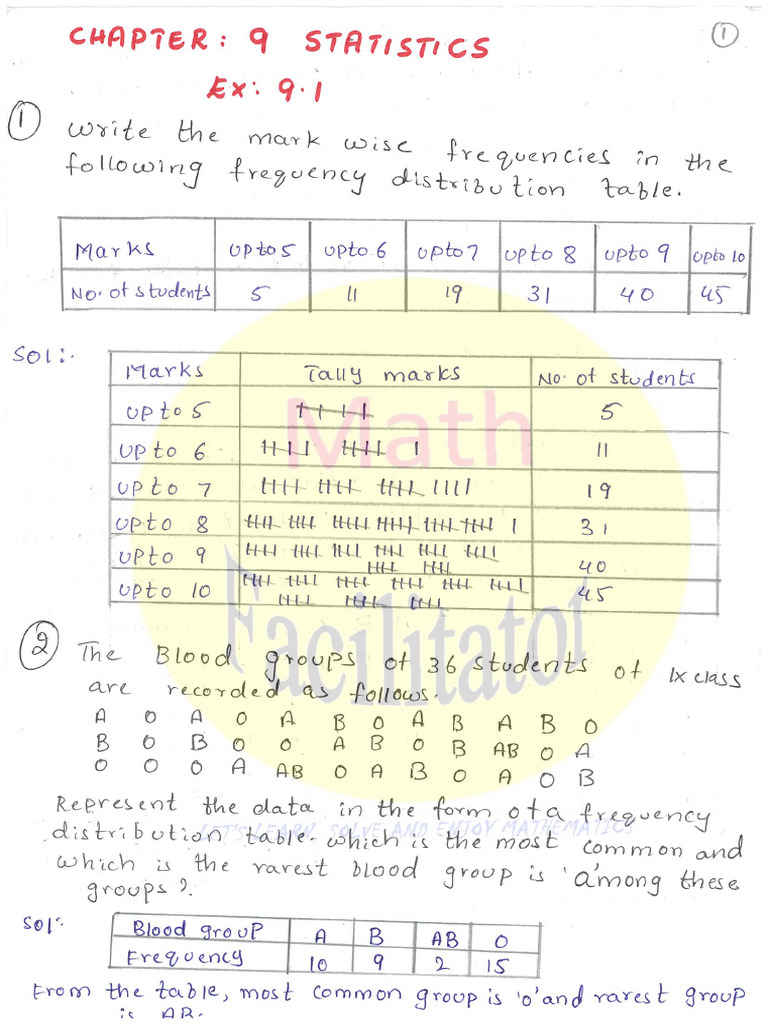 1
CHAPTER: 9 STATISTICS
Ex: 9.1
1 Write the mark wise frequencies in the
following frequency distribution table.
Marks upto 5 upto 6 upto 7 upto 8 upto 9 upto 10
No. of students 5 11 19 31 40 45
Sol:
Marks Tally marks No. of students
upto 5 5
upto 6 11
upto 7 19
upto 8 31
upto 9 40
upto 10 45
Math
Facilitator
2 The Blood groups of 36 students of IX class
are recorded as follows.
A O A O A B O A B A B O
B O B O O A B O B AB O A
O O O A AB O A B O A O B
Represent the data in the form of a frequency
distribution table. which is the most common and
LET'S LEARN, SOLVE AND ENJOY MATHEMATICS
which is the rarest blood group is 'a'mong these
groups?
Sol:
Blood group A B AB O
Frequency 10 9 2 15
From the table, most common group is 'o' and rarest group
is AB.